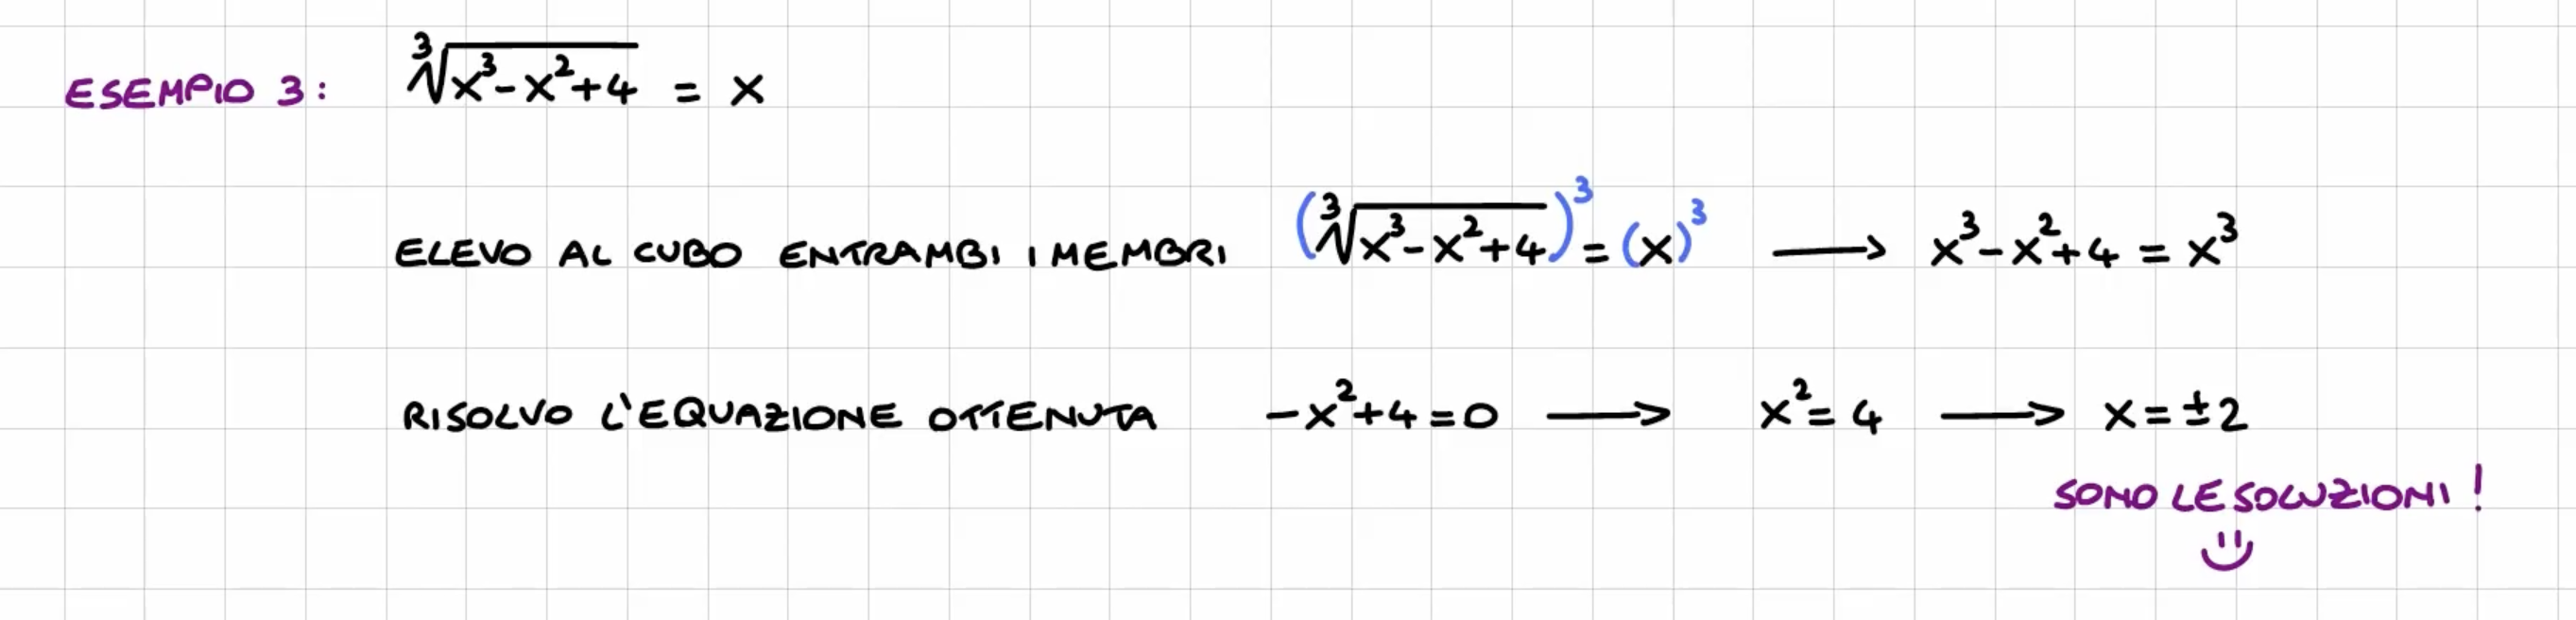 ESEMPIO 3: ∛(x³-x²+4) = x
ELEVO AL CUBO ENTRAMBI I MEMBRI (∛(x³-x²+4))³ = (x)³ ⟶ x³-x²+4 = x³
RISOLVO L'EQUAZIONE OTTENUTA -x²+4=0 ⟶ x²=4 ⟶ x=±2
SONO LE SOLUZIONI!